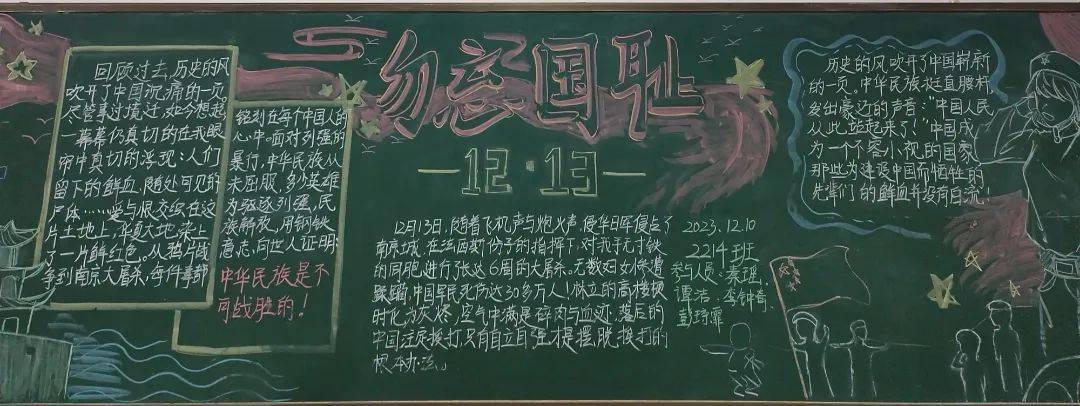 勿忘国耻
12·13
回顾过去,历史的风
吹开了中国沉痛的一页。
尽管事过境迁,如今想起,
一幕幕仍真切的在我眼
帘中真切的浮现:人们
留下的鲜血,随处可见的
尸体……爱与恨交织在这
片土地上,华夏大地,染上
了一片鲜红色。从鸦片战
争到南京大屠杀,每件事都
铭刻在每个中国人的
心中。面对列强的
暴行,中华民族从
未屈服,多少英雄
为驱逐列强,民
族解放,用钢铁
意志,向世人证明:
中华民族是不
可战胜的!
12月13日,随着飞机声与炮火声,侵华日军侵占了
南京城,在法西斯份子的指挥下,对我手无寸铁
的同胞进行长达6周的大屠杀。无数妇女惨遭
蹂躏,中国军民死伤达30多万人!林立的高楼顿
时化为灰烬,空气中满是碎肉与血迹,落后的
中国注定挨打,只有自立自强才是摆脱挨打的
根本办法。
2023.12.10
2214班
参与人员:秦瑶.
谭洁.李钟奇.
彭琦霏
历史的风吹开了中国崭新
的一页。中华民族挺直腰杆,
发出豪迈的声音:“中国人民
从此站起来了!”中国成
为一个不容小视的国家,
那些为建设中国而牺牲的
先辈们的鲜血并没有白流!